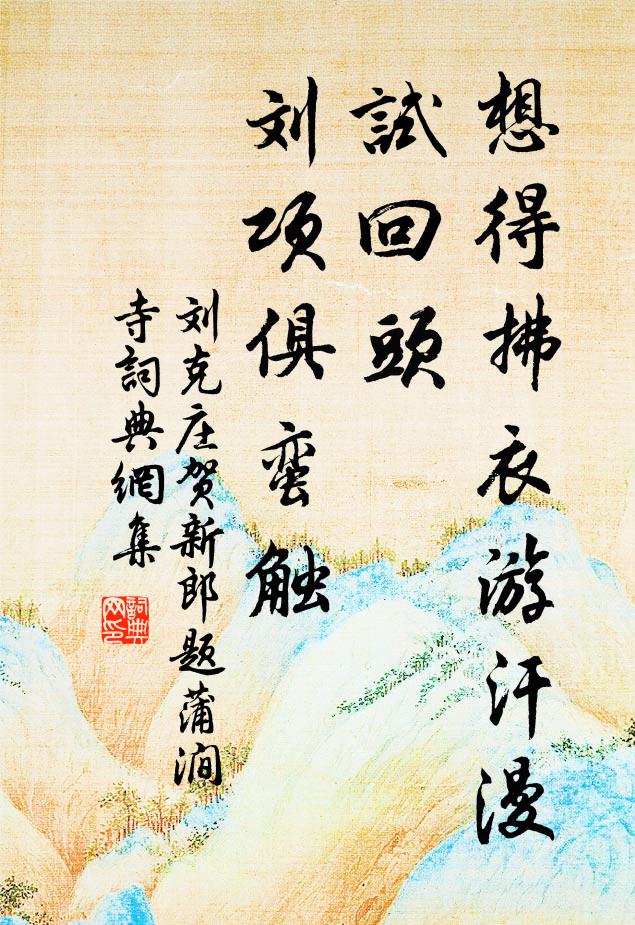 想得拂衣游汗漫
試回頭
刘項俱蛮触
刘克庄贺新郎题蒲涧
寺詞典網集
詞典网印